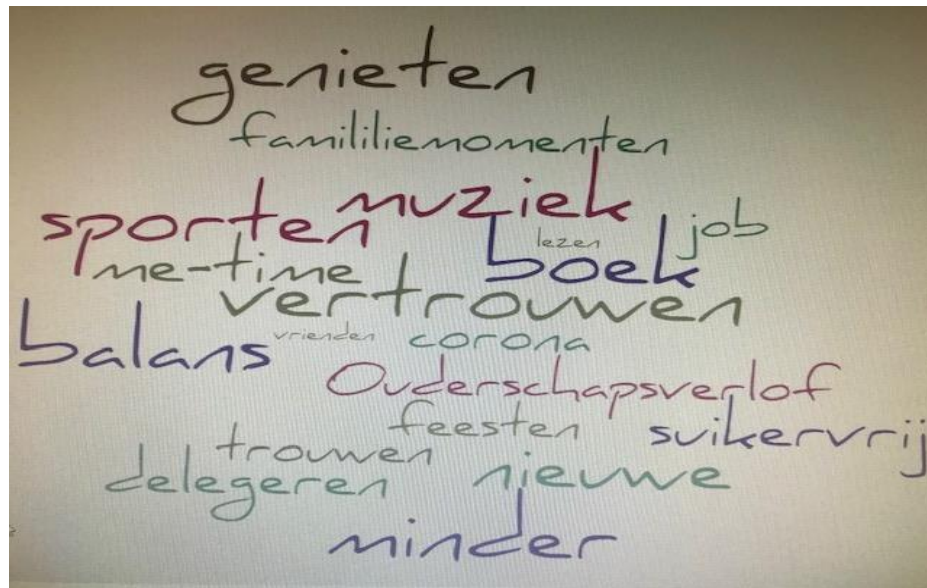 genieten
famililiemomenten
sporten muziek job
lezen
me-time boek
vertrouwen
balans vrienden corona
Ouderschapsverlof
feesten suikervrij
trouwen
delegeren nieuwe
minder